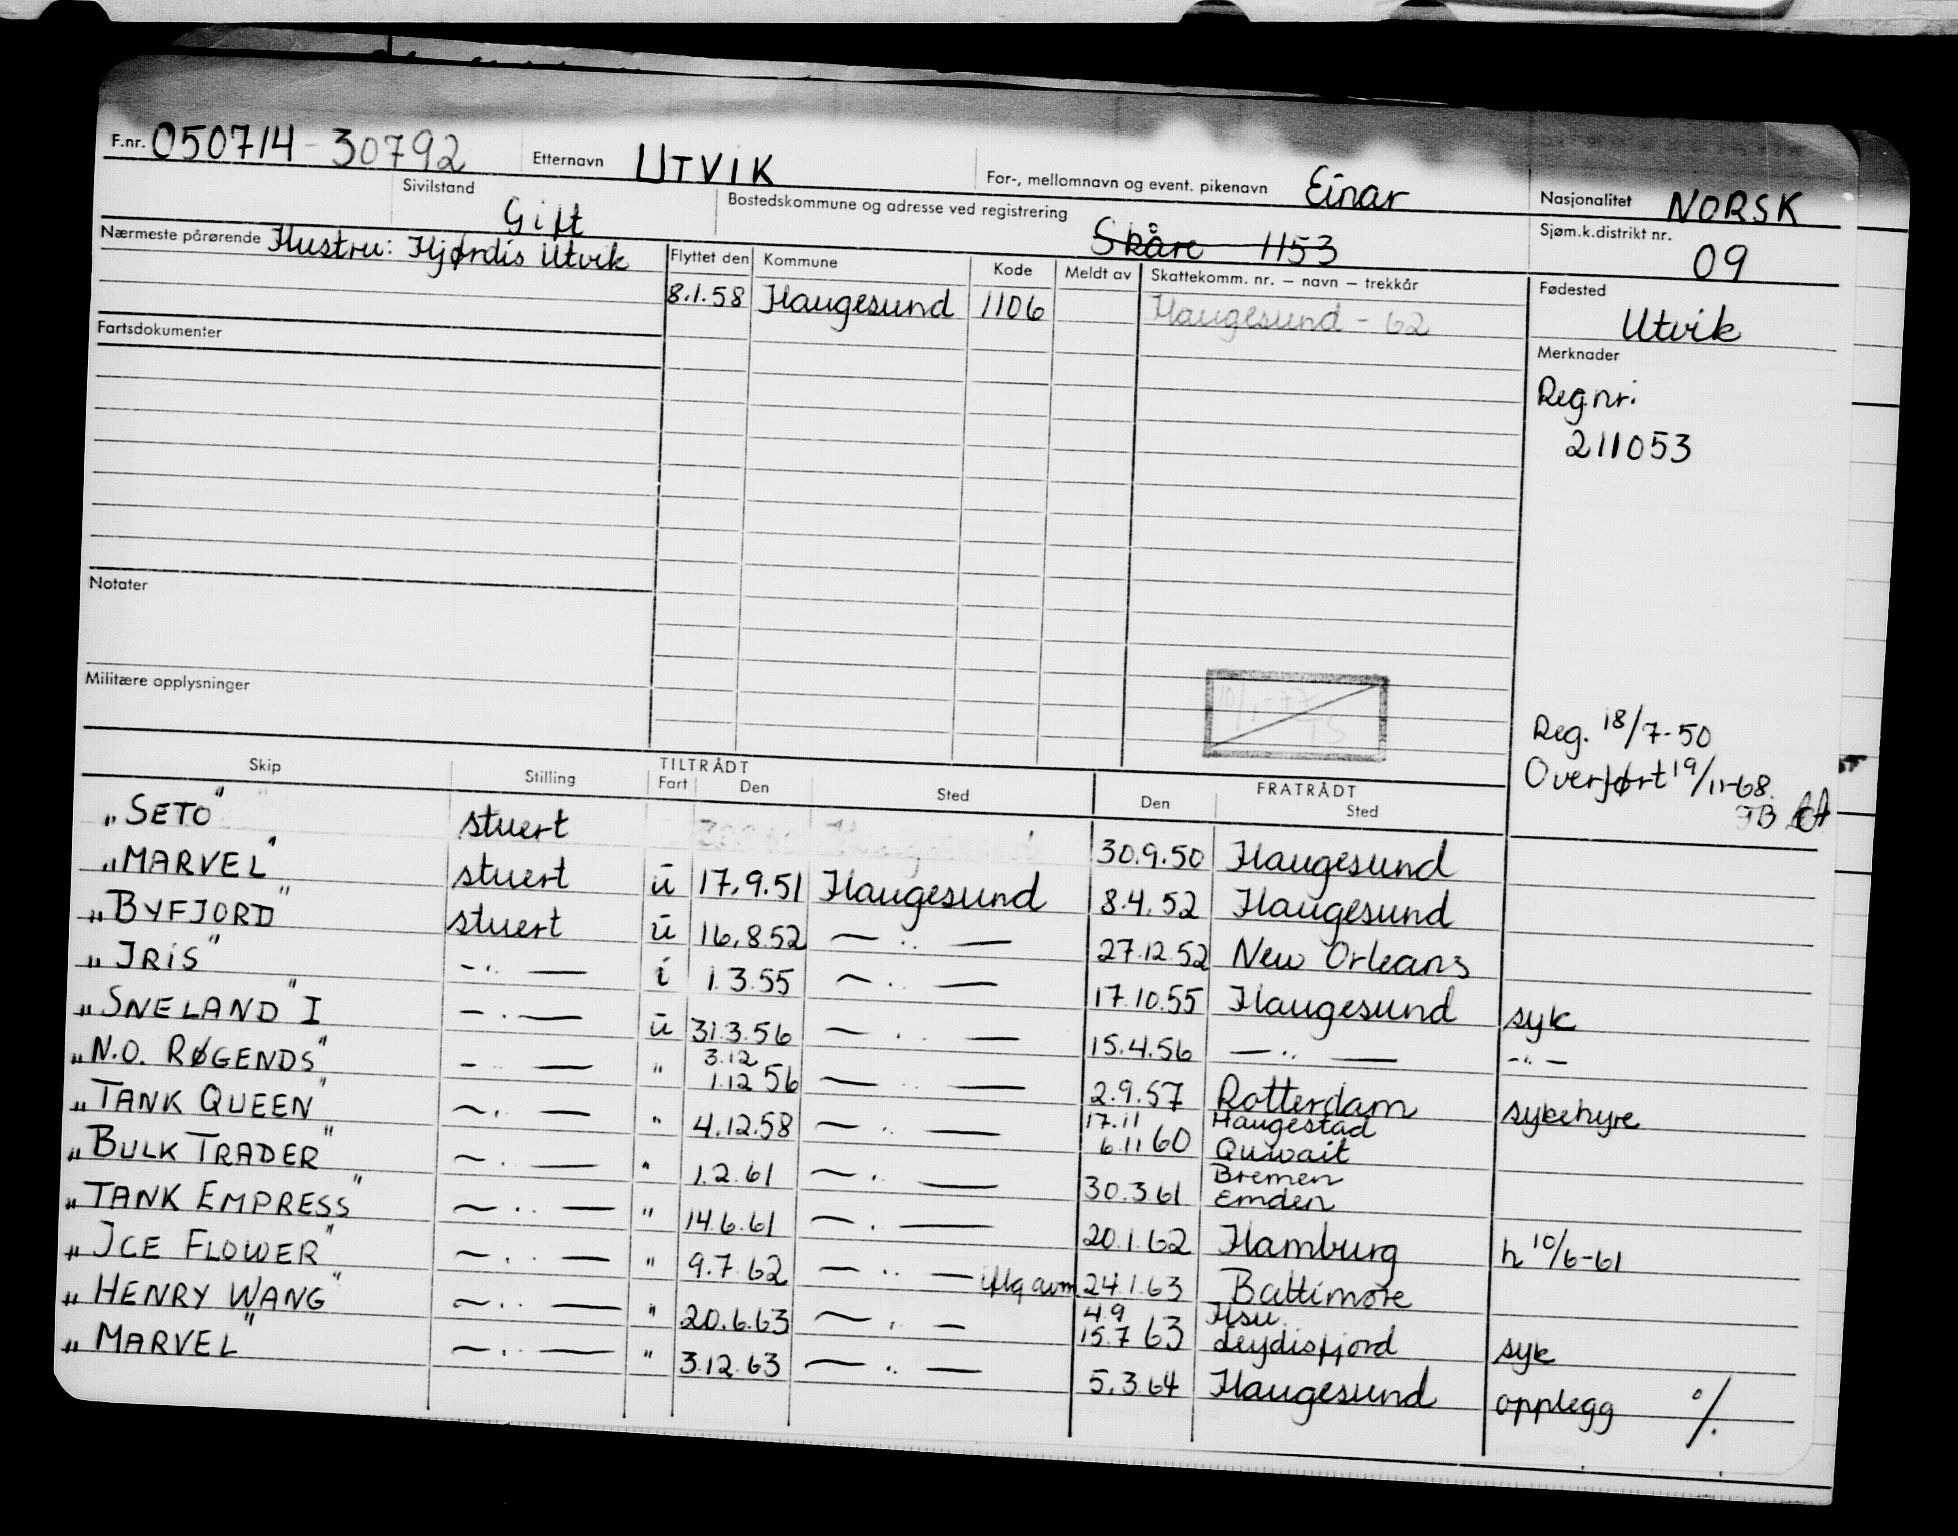 F.nr. 050714-30792 Etternavn UTVIK For-, mellomnavn og event. pikenavn Einar Nasjonalitet NORSK
Sivilstand Gift Bostedskommune og adresse ved registrering Skåre 1153 Sjøm.k.distrikt nr. 09
Nærmeste pårørende Hustru: Hjørdis Utvik
Flyttet den Kommune Kode Meldt av Skattekomm. nr. – navn – trekkår Fødested
8.1.58 Haugesund 1106 Haugesund - 62 Utvik
Fartsdokumenter
Merknader
Reg.nr.
211053
Notater
Militære opplysninger
10/1-77
Reg. 18/7-50
Overført 19/11-68.
Skip Stilling TILTRÅDT Fart Den Sted FRATRÅDT Den Sted
"SETO" stuert 30.9.50 Haugesund
"MARVEL" stuert u 17.9.51 Haugesund 8.4.52 Haugesund
"BYFJORD" stuert u 16.8.52 — " — 27.12.52 New Orleans
"IRIS" — " — i 1.3.55 — " — 17.10.55 Haugesund syk
"SNELAND" I — " — u 31.3.56 — " — 15.4.56 — " — — " —
"N.O. RØGENDS" — " — " 3.12 1.12 56 — " — 2.9.57 Rotterdam sykehyre
"TANK QUEEN" — " — " 4.12.58 — " — 17.11 6.11 60 Haugestad Quwait
"BULK TRADER" — " — " 1.2.61 — " — 30.3.61 Bremen Emden
"TANK EMPRESS" — " — " 14.6.61 — " — 20.1.62 Hamburg h 10/6-61
"ICE FLOWER" — " — " 9.7.62 — " — iflg avm 24.1.63 Baltimore
"HENRY WANG" — " — " 20.6.63 — " — 4.9 15.7 63 Hsu. Seydisfjord syk
"MARVEL" — " — " 3.12.63 — " — 5.3.64 Haugesund opplegg ·/.